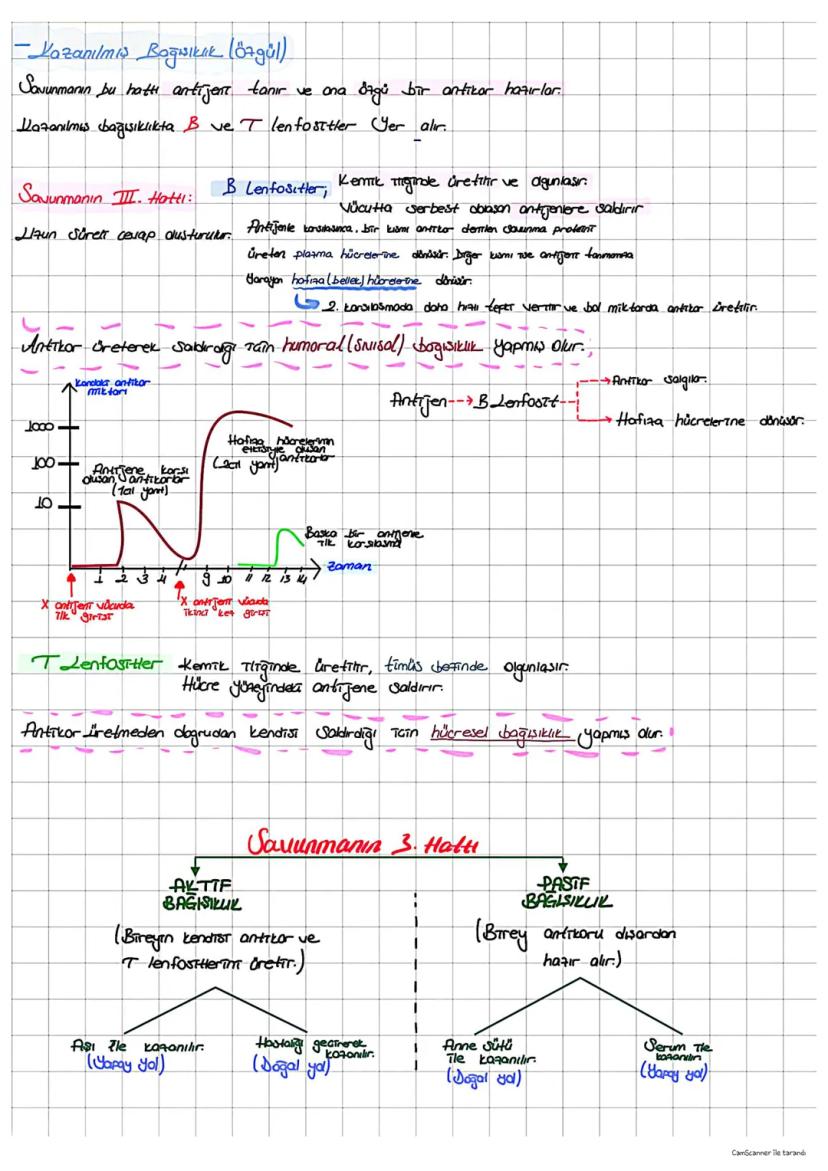 - Kazanılmış Bağışıklık (Özgül)
Savunmanın bu hattı antijeni tanır ve ona özgü bir antikor hazırlar.
Kazanılmış bağışıklıkta B ve T lenfositler yer alır.
Savunmanın III. Hattı:
Uzun süreli cevap oluşturulur.
B Lenfositler; Kemik iliğinde üretilir ve olgunlaşır.
Vücutta serbest dolaşan antijenlere saldırır
Antijenle karşılaşınca, bir kısmı antikor denilen savunma proteini
üreten plazma hücrelerine dönüşür. Diğer kısmı ise antijeni tanımaya
yarayan hafıza (bellek) hücrelerine dönüşür.
2. karşılaşmada daha hızlı tepki verilir ve bol miktarda antikor üretilir.
Antikor üreterek saldırdığı için humoral (sıvısal) bağışıklık yapmış olur.
Kandaki antikor
miktarı
1000
100
10
Antijene karşı
oluşan antikorlar
(1cil yanıt)
Hafıza hücrelerinin
etkisiyle oluşan
(2cil yanıt) antikorlar
Başka bir antijene
ilk karşılaşma
1 2 3 4 9 10 11 12 13 14
zaman
X antijeni vücuda
ilk girişi
X antijeni vücuda
ikinci kez girişi
Antijen --> B Lenfosit
Antikor salgılar.
Hafıza hücrelerine dönüşür.
T Lenfositler Kemik iliğinde üretilir, timüs bezinde olgunlaşır.
Hücre yüzeyindeki antijene saldırır.
Antikor üretmeden doğrudan kendisi saldırdığı için hücresel bağışıklık yapmış olur.
Savunmanın 3. Hattı
AKTİF
BAĞIŞIKLIK
(Bireyin kendisi antikor ve
T lenfositlerini üretir.)
Aşı ile kazanılır.
(Yapay yol)
Hastalığı geçirerek
kazanılır.
(Doğal yol)
PASİF
BAĞIŞIKLIK
(Birey antikoru dışardan
hazır alır.)
Anne sütü
ile kazanılır.
(Doğal yol)
Serum ile
kazanılır
(Yapay yol)
CamScanner ile tarandı